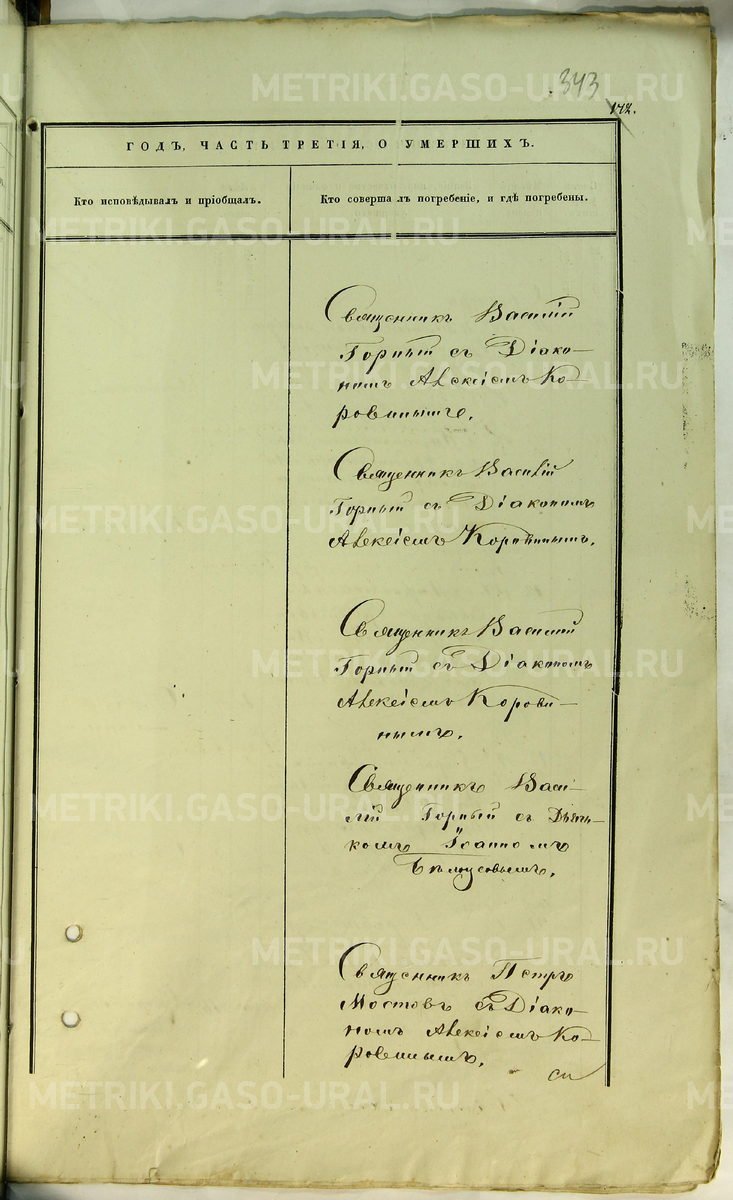 343
172.
ГОДЪ, ЧАСТЬ ТРЕТІЯ, О УМЕРШИХЪ.
Кто исповѣдывалъ и пріобщалъ.
Кто совершалъ погребеніе, и гдѣ погребены.
Священникъ Василій
Горный съ Діако-
номъ Алексіемъ Ко-
ровинымъ.
Священникъ Василій
Горный съ Діакономъ
Алексіемъ Коровинымъ.
Священникъ Василій
Горный съ Діакономъ
Алексіемъ Корови-
нымъ.
Священникъ Васи-
лій Горный съ Дьяч-
комъ Іоанномъ
Бѣлоусовымъ.
Священникъ Петръ
Мостовъ съ Діако-
номъ Алексіемъ Ко-
ровинымъ.
METRIKI.GASO-URAL.RU